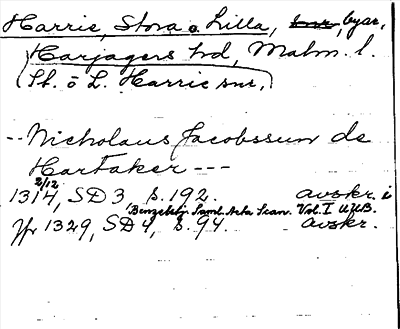 Harrie, Stora o Lilla, snr, byar,
Harjagers hd, Malm. l.
(St. o L. Harrie snr,)
-- Nicholaus Jacobssun de
Hartaker ---
2/12
1314, SD 3 s. 192. avskr. i
Benzelstj. Saml. Acta Scan. Vol. I UUB.
Jfr 1329, SD 4, s. 94. avskr.